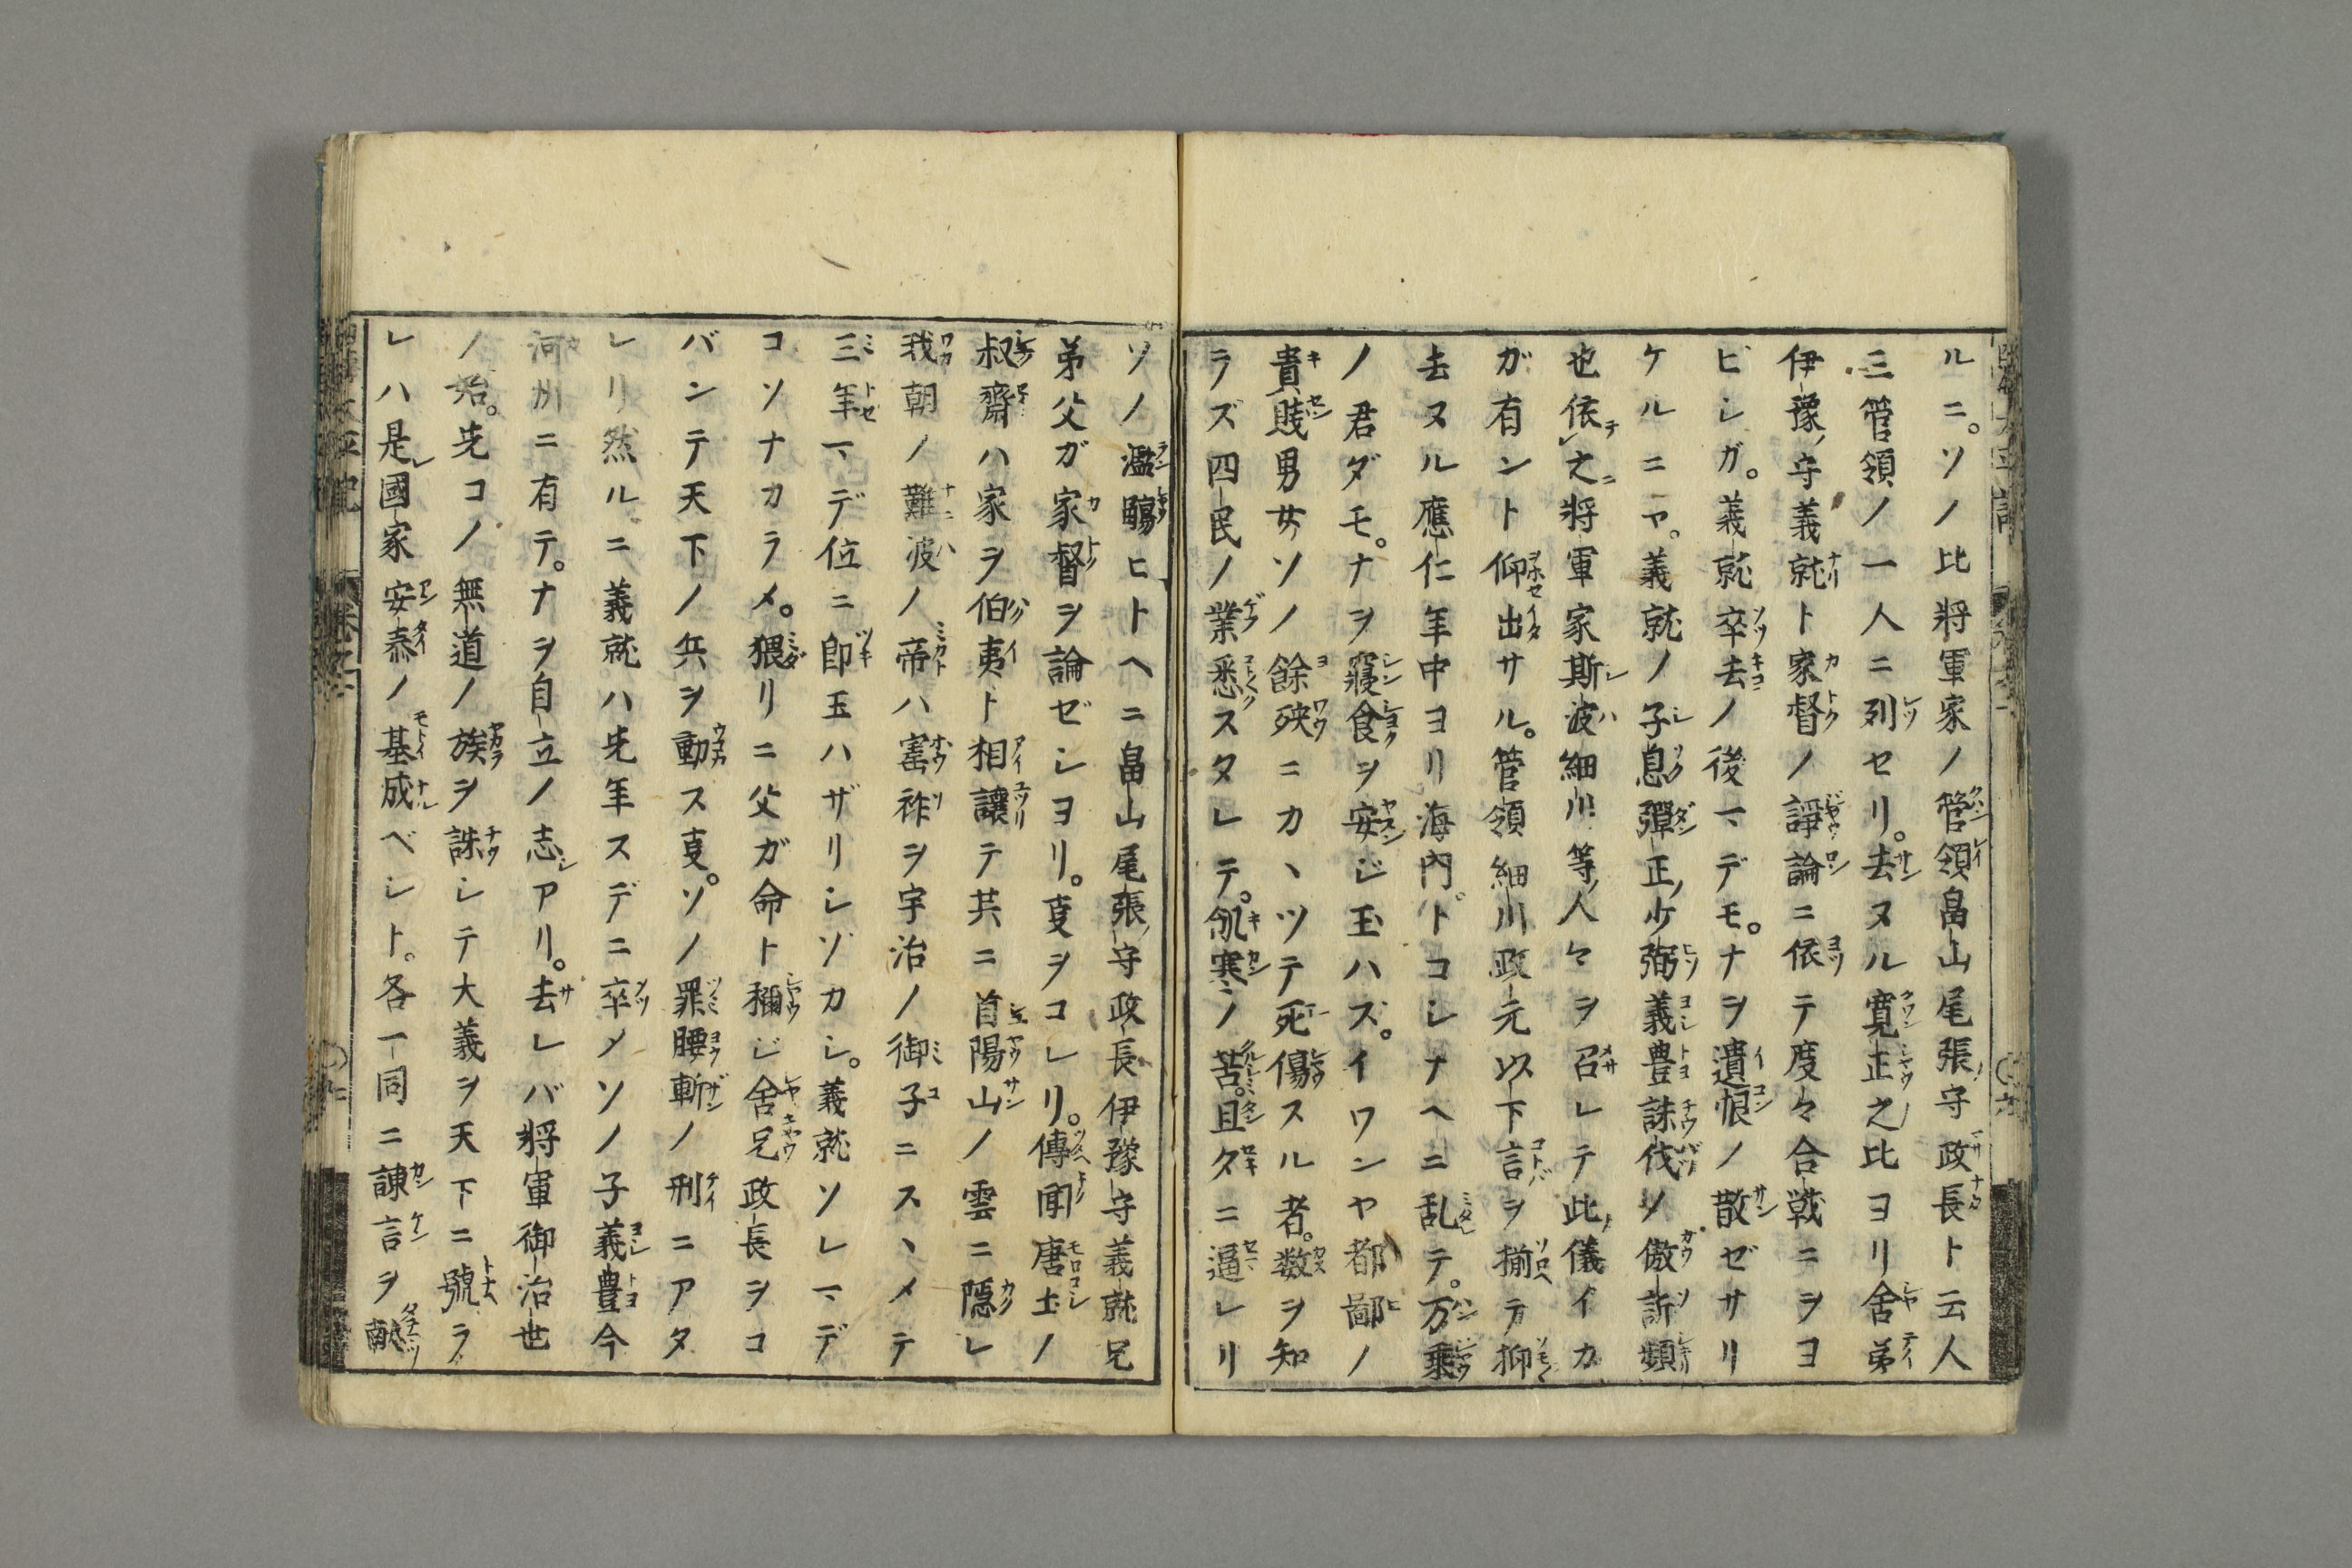 ルニ。ソノ比將軍家ノ管領畠山尾張守政長ト云人
三管領ノ一人ニ列セリ。去ヌル寛正之比ヨリ舎弟
伊豫守義就ト家督ノ諍論ニ依テ度々合戦ニヲヨ
ビシガ。義就卒去ノ後マデモ。ナヲ遺恨ノ散ゼサリ
ケルニヤ。義就ノ子息彈正少弼義豊誅伐ノ傲訴頻
也依之將軍家斯波細川等人々ヲ召レテ此儀イカ
ガ有ント仰出サル。管領細川政元以下言ヲ揃テ抑
去ヌル應仁年中ヨリ海内トコシナヘニ乱テ。万乗
ノ君ダモ。ナヲ寢食ヲ安ジ玉ハズ。イワンヤ都鄙ノ
貴賤男女ソノ餘殃ニカヽツテ死傷スル者。数ヲ知
ラズ四民ノ業悉スタレテ。飢寒ノ苦。且夕ニ逼レリ
ソノ濫觴ヒトヘニ畠山尾張守政長伊豫守義就兄
弟父ガ家督ヲ論ゼシヨリ。叓ヲコレリ。傳聞唐土ノ
叔齋ハ家ヲ伯夷ト相讓テ共ニ首陽山ノ雲ニ隠レ
我朝ノ難波ノ帝ハ寳祚ヲ宇治ノ御子ニスヽメテ
三年マデ位ニ即玉ハザリシゾカシ。義就ソレマデ
コソナカラメ。猥リニ父ガ命ト稱ジ舎兄政長ヲコ
バンテ天下ノ兵ヲ動ス叓。ソノ罪腰斬ノ刑ニアタ
レリ然ルニ義就ハ先年スデニ卒メソノ子義豊今
河州ニ有テ。ナヲ自立ノ志アリ。去レバ將軍御治世
ノ始。先コノ無道ノ族ヲ誅シテ大義ヲ天下ニ號ラ
レハ是國家安泰ノ基成ベシト。各一同ニ諌言ヲ献